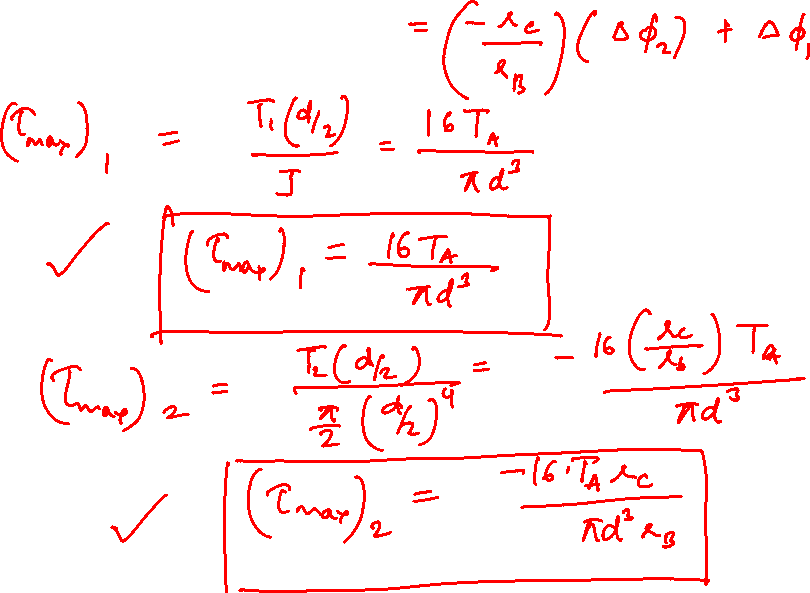 = (-r_C / r_B) (Δϕ_2) + Δϕ_1
(τ_max)_1 = T_1(d/2) / J = 16 T_A / πd³
✓ (τ_max)_1 = 16 T_A / πd³
(τ_max)_2 = T_2(d/2) / (π/2 (d/2)⁴) = - 16 (r_C / r_b) T_A / πd³
✓ (τ_max)_2 = -16 T_A r_C / πd³ r_B